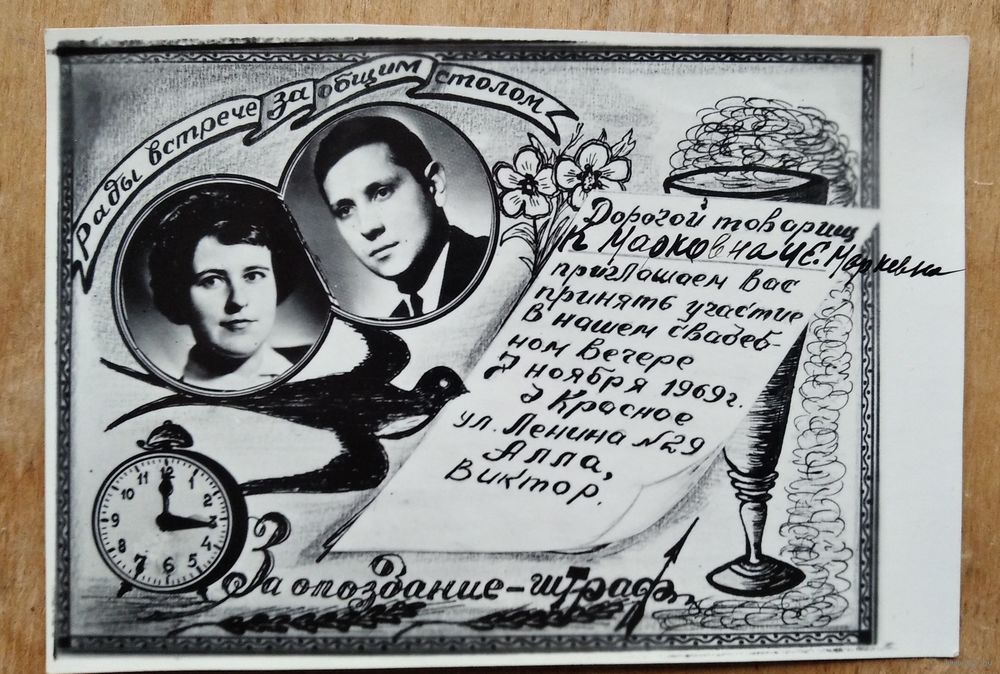 рады встрече за общим столом
Дорогой товарищ
Марковна и Е. Марковна
приглашаем вас
принять участие
в нашем свадеб-
ном вечере
7 ноября 1969г.
Красное
ул. Ленина №29
Алла,
Виктор.
12
1
2
3
4
5
6
7
8
9
10
11
За опоздание-штраф